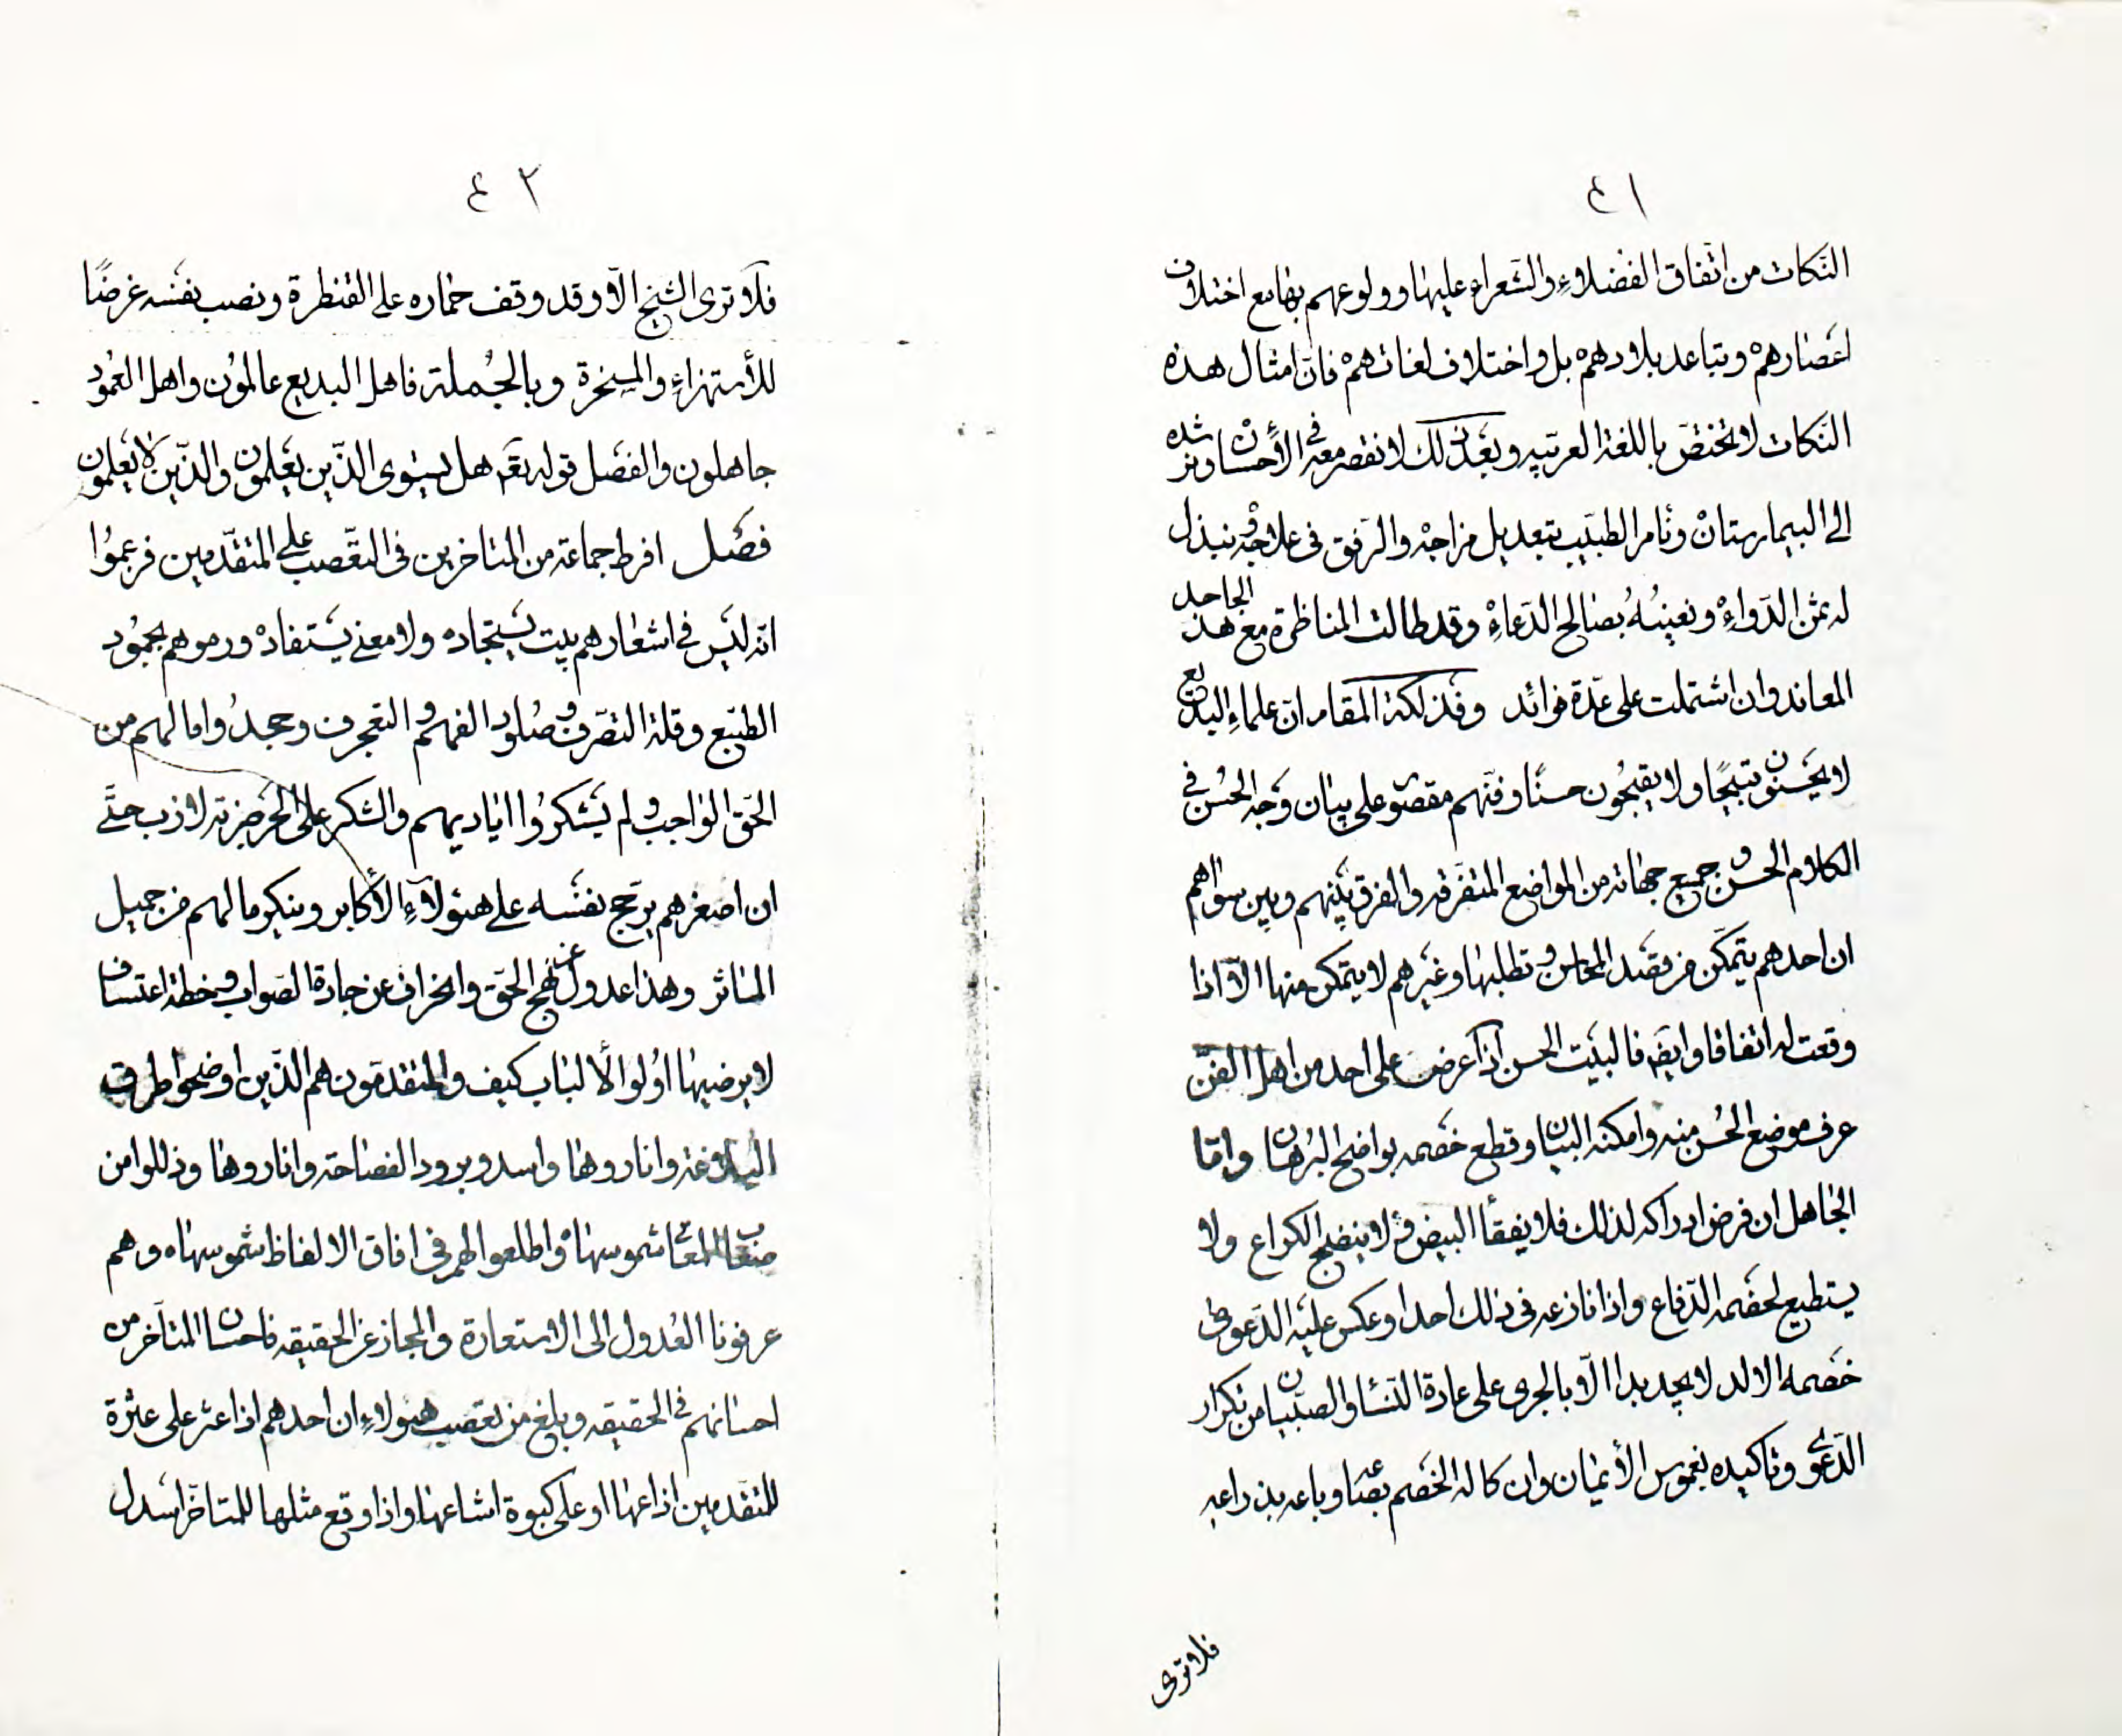 ٤١
النّكات من اتّفاق الفضلاءِ والشّعراء عليها وولوعهم بها مع اختلاف
اعصارهمْ وتباعد بلادهمْ بل واختلاف لغاتهمْ فانّ امثال هذه
النّكات لا تختصّ باللغة العربيّه وبعد ذلك لا نقصر معه في الأحسان ونرشده
الى البيمارستانْ ونأمر الطبيب بتعديل مزاجهْ والرّفق في علاجهْ ونبذل
له ثمن الدّواءْ ونعينُهُ بصالح الدّعاءْ وقد طالت المناظرة مع هذا الجاحد
المعاند وان اشتملت على عدّة فوائد وفذلكة المقام انّ علماء البديع
لا يحسّنون قبيحًا ولا يقبّحون حسنًا وفنّهم مقصور على بيان وجه الحُسن في
الكلام الحسن و جميع جهاته من المواضع المتفرّقه والفرق بينهم وبين سواهم
ان احدهم يتمكّن من قصد المحاسن وتطلبها وغيرهم لا يتمكن منها الّا اذا
وقعت له اتفاقا وايضا فالبيت الحسن اذا عرض على احد من اهل الفنّ
عرف موضع الحُسن منه وامكنه البيان وقطع خصمه بواضح البُرهان وامّا
الجاهل ان فرض ادراكه لذلك فلا يفقأ البيض ولا ينضج الكراع ولا
يستطيع لخصمه الدّفاع واذا نازعه في ذلك احد او عكس عليه الدّعوى
خصمه الالد لا يجد بدا الّا بالجرى على عادة النّساء والصّبيان من تكرار
الدّعوى وتأكيده بغموس الأيمان وان كاله الخصم بصاعه وباعه بذراعه
فلا ترى
٤٢
فلا ترى الشيخ الّا وقد وقف حماره على القنطرة ونصب نفسه غرضًا
للأستهزاءِ والمسخرة وبالجُملة فاهل البديع عالموُن واهل العمُود
جاهلون والفصل قوله تعَم هل يستوى الّذين يعلمون والّذين لا يعلمون
فصل افرط جماعة من المتاخرين في التعّصب على المتقدّمين فزعموُا
انّه ليس في اشعارهم بيت يستجاده ولا معنى يستفادهْ ورموهم بجمُود
الطبّع وقلة التصّرف وصُلود الفهم و التعجرف وجحدوُا مالهم من
الحّق الواجب ولم يَشكرُوا اياديهم والشكر على الحرّ ضربة لازب حتّى
ان اصغرهم يرجّح نفسه على هؤلآءِ الأكابر وينكر مالهم من جميل
المآثر وهذا عدول عن نهج الحّق وانحراف عن جادة الصّواب وخطة اعتساف
لا يرضيها اوُلوا الألباب كيف والمتقدمّون هم الّذين اوضحوا طرق
البلاغة واناروها واسدو برود الفصاحة واناروها وذللوا من
صعاب المعاني شموسهاه واطلعوا لهم في افاق الالفاظ شموسهاه وهم
عرفونا العُدول الى الاستعارة والمجاز عن الحقيقه فاحسان المتآخر من
احسانهم في الحقيقه وبلغ من تعصب هؤلاءِ ان احدهم اذا عثر على عثرة
للمتقدّمين اذاعها او على كبوة اشاعها واذا وقع مثلها للمتاخّر اسدل